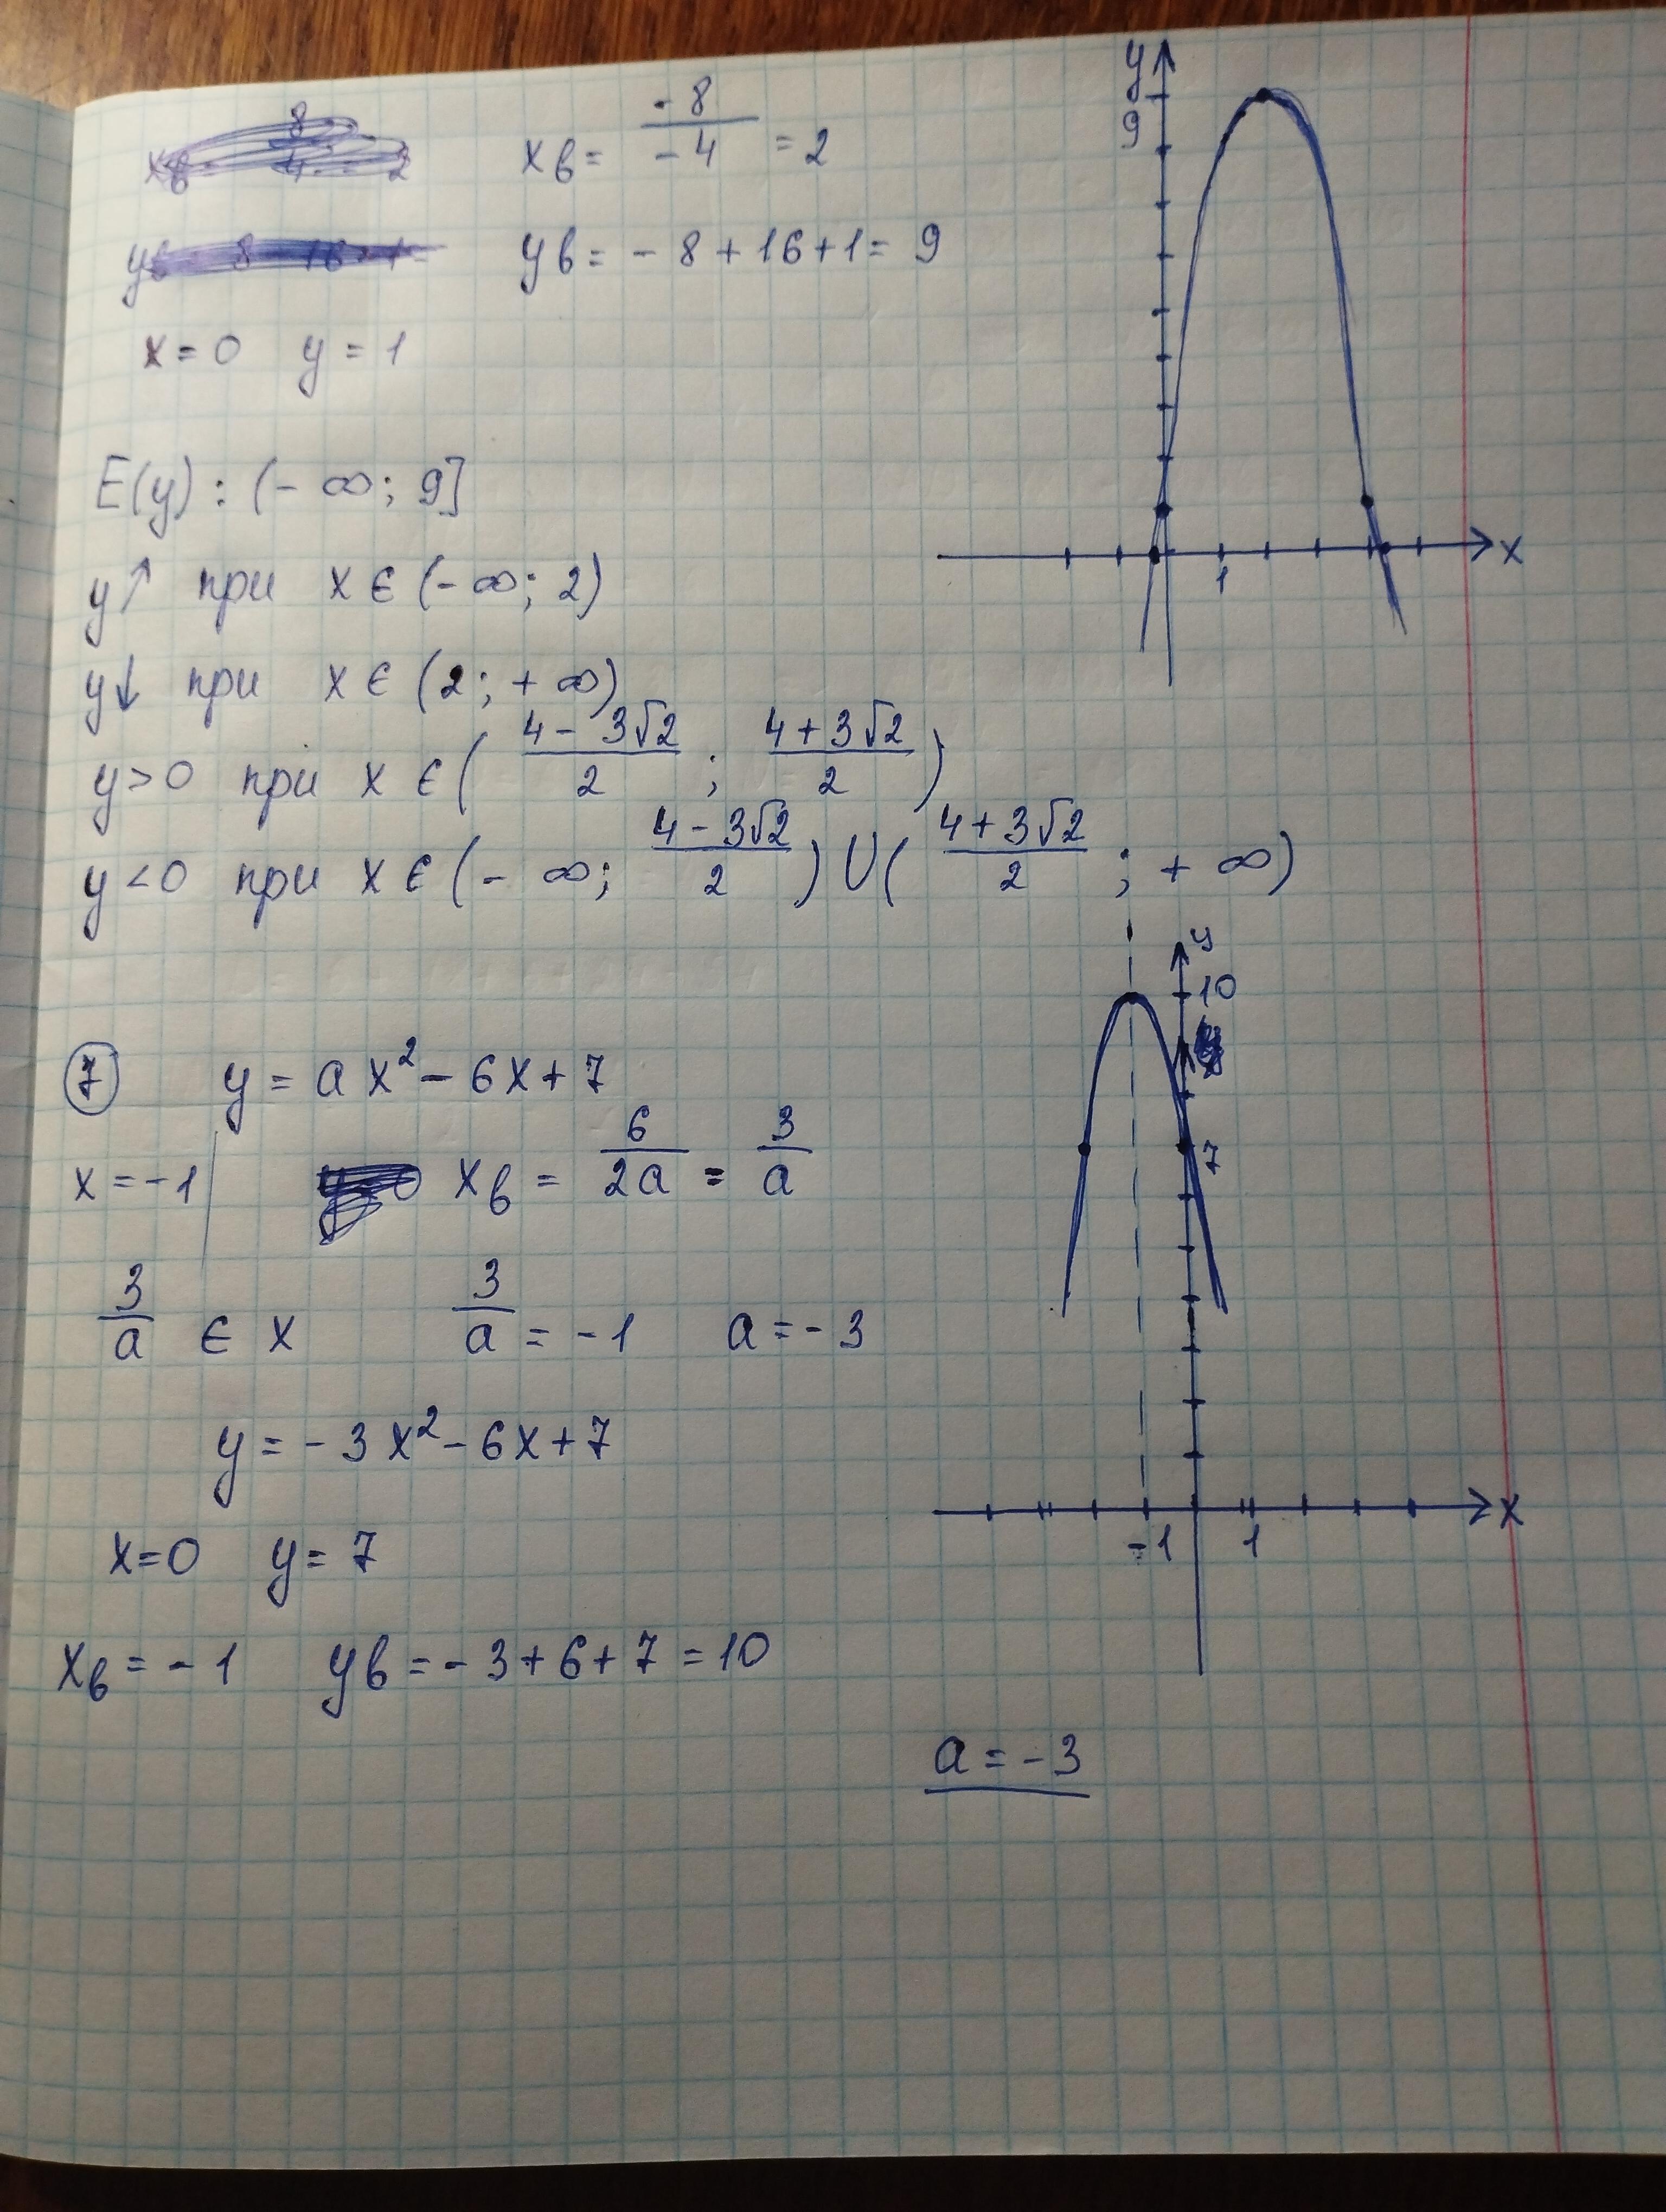 xв = -8/-4 = 2
yв = - 8 + 16 + 1 = 9
x = 0 y = 1
E(y) : (- ∞; 9]
y↑ при x ∈ (- ∞; 2)
y↓ при x ∈ (2; + ∞)
y > 0 при x ∈ ( (4 - 3√2)/2 ; (4 + 3√2)/2 )
y < 0 при x ∈ (- ∞; (4 - 3√2)/2 ) ∪ ( (4 + 3√2)/2 ; + ∞)
y
9
1
x
7 y = ax² - 6x + 7
x = -1 xв = 6/2a = 3/a
3/a ∈ x 3/a = -1 a = -3
y = -3x² - 6x + 7
x = 0 y = 7
xв = -1 yв = -3 + 6 + 7 = 10
y
10
7
-1 1
x
a = -3